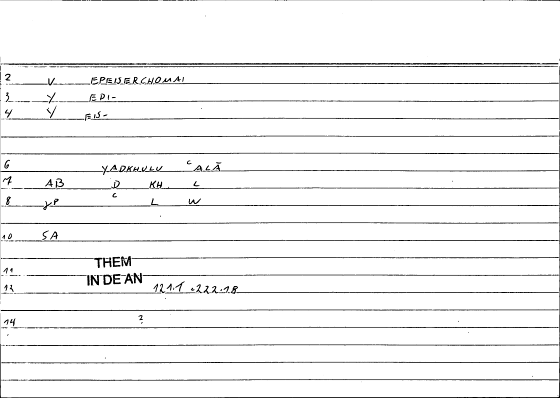 2 V EPEISERCHOMAI
3 Y EPI-
4 Y EIS-
6 YADKHULU ᶜALĀ
7 AB D KH L
8 ɣP ᶜ L W
10 SA
11 THEM
IN DE AN
12 121.1 .222.18
14 ?